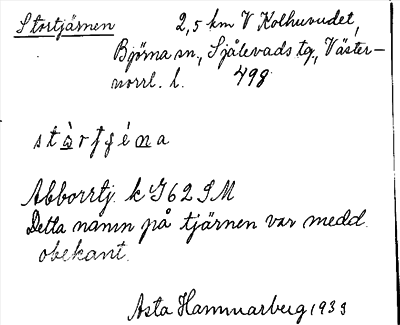 Stortjärnen 2,5 km V Kolhuvudet,
Björna sn., Själevads tg., Väster-
norrl. l. 498
Abborrtj. k G 62 SM
Detta namn på tjärnen var medd.
obekant.
Asta Hammarberg 1933